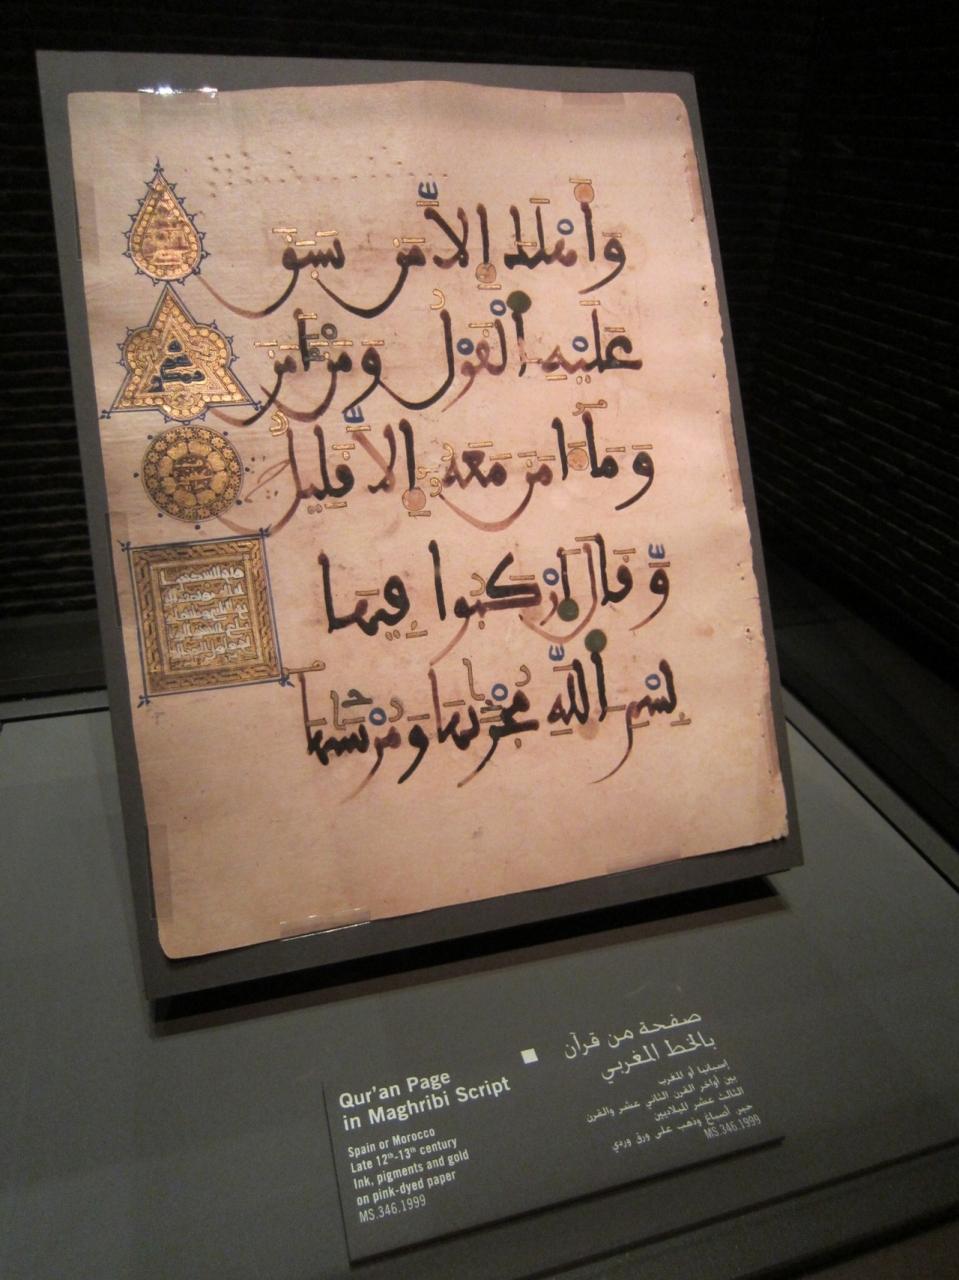 وَأَهْلَكَ إِلَّا مَن سَبَقَ
عَلَيْهِ ٱلْقَوْلُ وَمَنْ ءَامَنَ
وَمَآ ءَامَنَ مَعَهُۥٓ إِلَّا قَلِيلٌ
وَقَالَ ٱرْكَبُوا فِيهَا
بِسْمِ ٱللَّهِ مُجْرَىٰهَا وَمُرْسَىٰهَا
Qur'an Page
in Maghribi Script
Spain or Morocco
Late 12th-13th century
Ink, pigments and gold
on pink-dyed paper
MS.346.1999
صفحة من قرآن
بالخط المغربي
إسبانيا أو المغرب
بين أواخر القرن الثاني عشر والقرن
الثالث عشر الميلاديين
حبر، أصباغ وذهب على ورق وردي
MS.346.1999